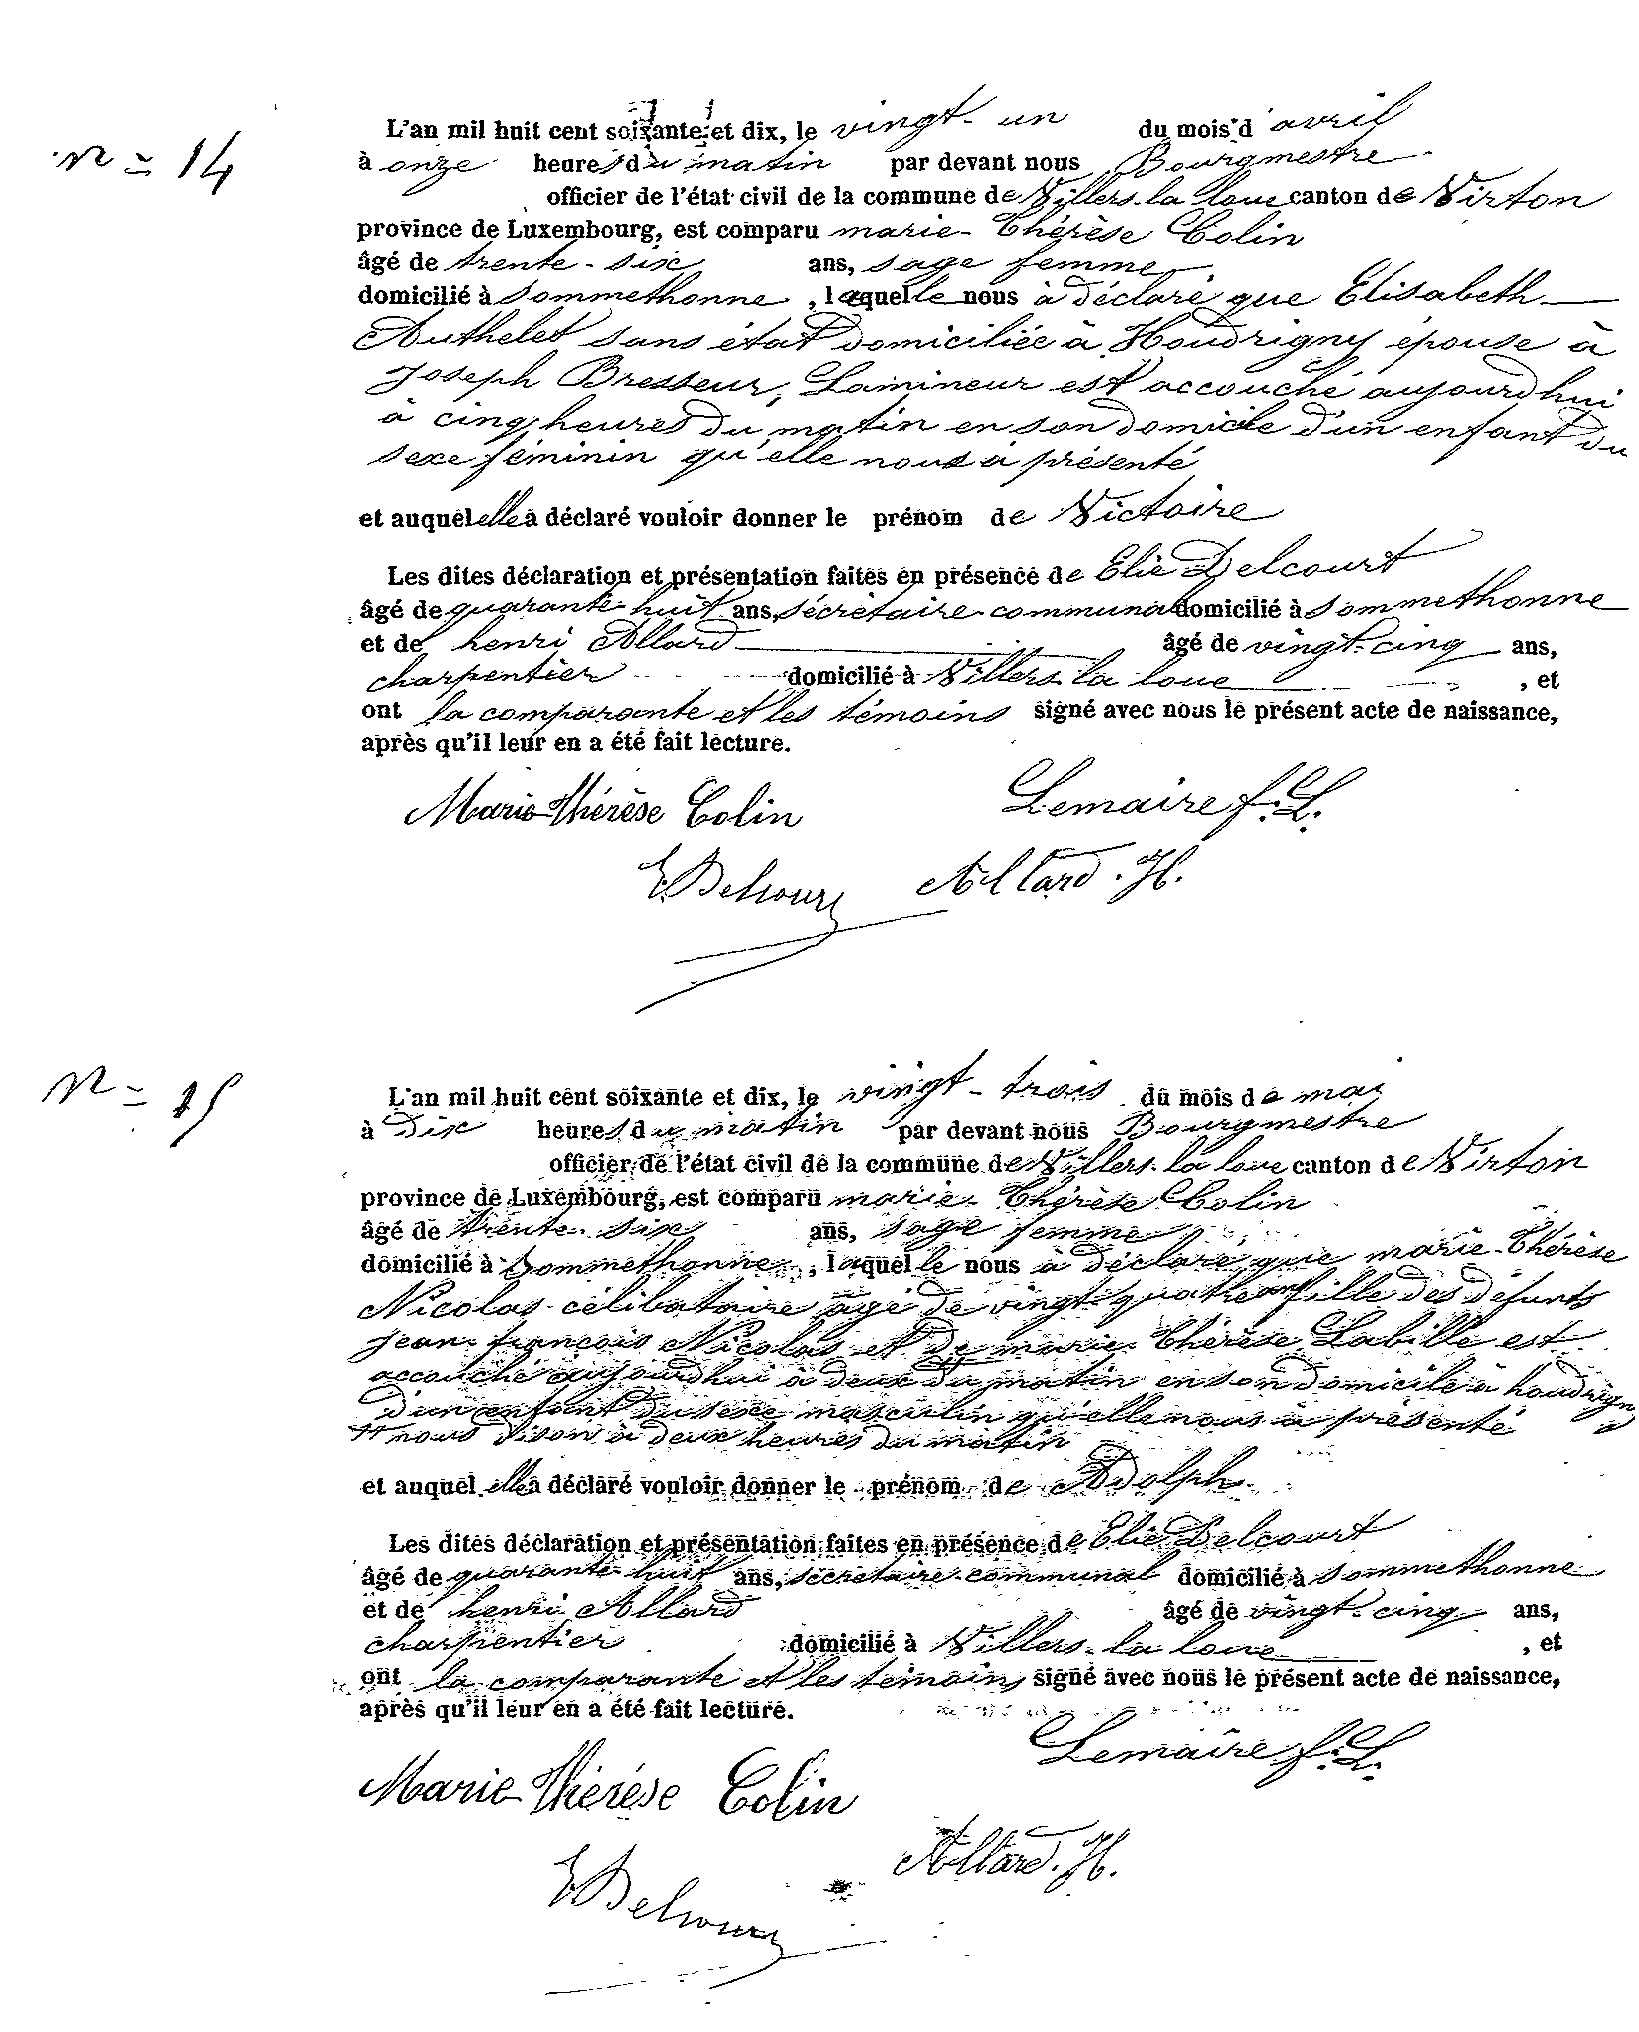 n= 14
L'an mil huit cent soixante et dix, le vingt-un du mois d'avril
à onze heures du matin par devant nous Bourgmestre
officier de l'état civil de la commune de Villers-la loue canton de Virton
province de Luxembourg, est comparu marie-Thérèse Colin
âgé de trente-six ans, sage femme,
domicilié à Sommethonne, laquelle nous à déclaré que Elisabeth
Authelet sans état domiciliée à Houdrigny épouse à
Joseph Bresseur, Lamineur est accouché aujourd'hui
à cinq heures du matin en son domicile d'un enfant du
sexe féminin qu'elle nous a présenté
et auquel elle a déclaré vouloir donner le prénom de Victoire
Les dites déclaration et présentation faites en présence de Elie Delcourt
âgé de quarante-huit ans, sécrétaire communal domicilié à Sommethonne
et de henri Allard âgé de vingt-cinq ans,
charpentier domicilié à Villers-la loue, et
ont la comparante et les témoins signé avec nous le présent acte de naissance,
après qu'il leur en a été fait lecture.
Marie-Thérèse Colin Lemaire f.L.
EDelcourt Allard.H.
n= 15
L'an mil huit cent soixante et dix, le vingt-trois du mois de mai
à Dix heures du matin par devant nous Bourgmestre
officier de l'état civil de la commune de Villers-la loue canton de Virton
province de Luxembourg, est comparu marie-Thérèse Colin
âgé de trente-six ans, sage femme
domicilié à Sommethonne, laquelle nous à déclaré que marie-Thérèse
Nicolas-célibataire âgé de vingt-quatre ans fille des défunts
jean-françois Nicolas et de marie-Thérèse Labille est
accouché aujourdhui à deux du matin en son domicile à houdrigny
d'un enfant du sexe masculin qu'elle nous à présenté
nous dison à deux heures du matin
et auquel elle a déclaré vouloir donner le prénom de Adolph.
Les dites déclaration et présentation faites en présence de Elie Delcourt
âgé de quarante-huit ans, sécrétaire-communal domicilié à Sommethonne
et de henri Allard âgé de vingt-cinq ans,
charpentier domicilié à Villers-la loue, et
ont la comparante et les témoins signé avec nous le présent acte de naissance,
après qu'il leur en a été fait lecture.
Marie-Thérèse Colin Lemaire f.L.
EDelcourt Allard.H.